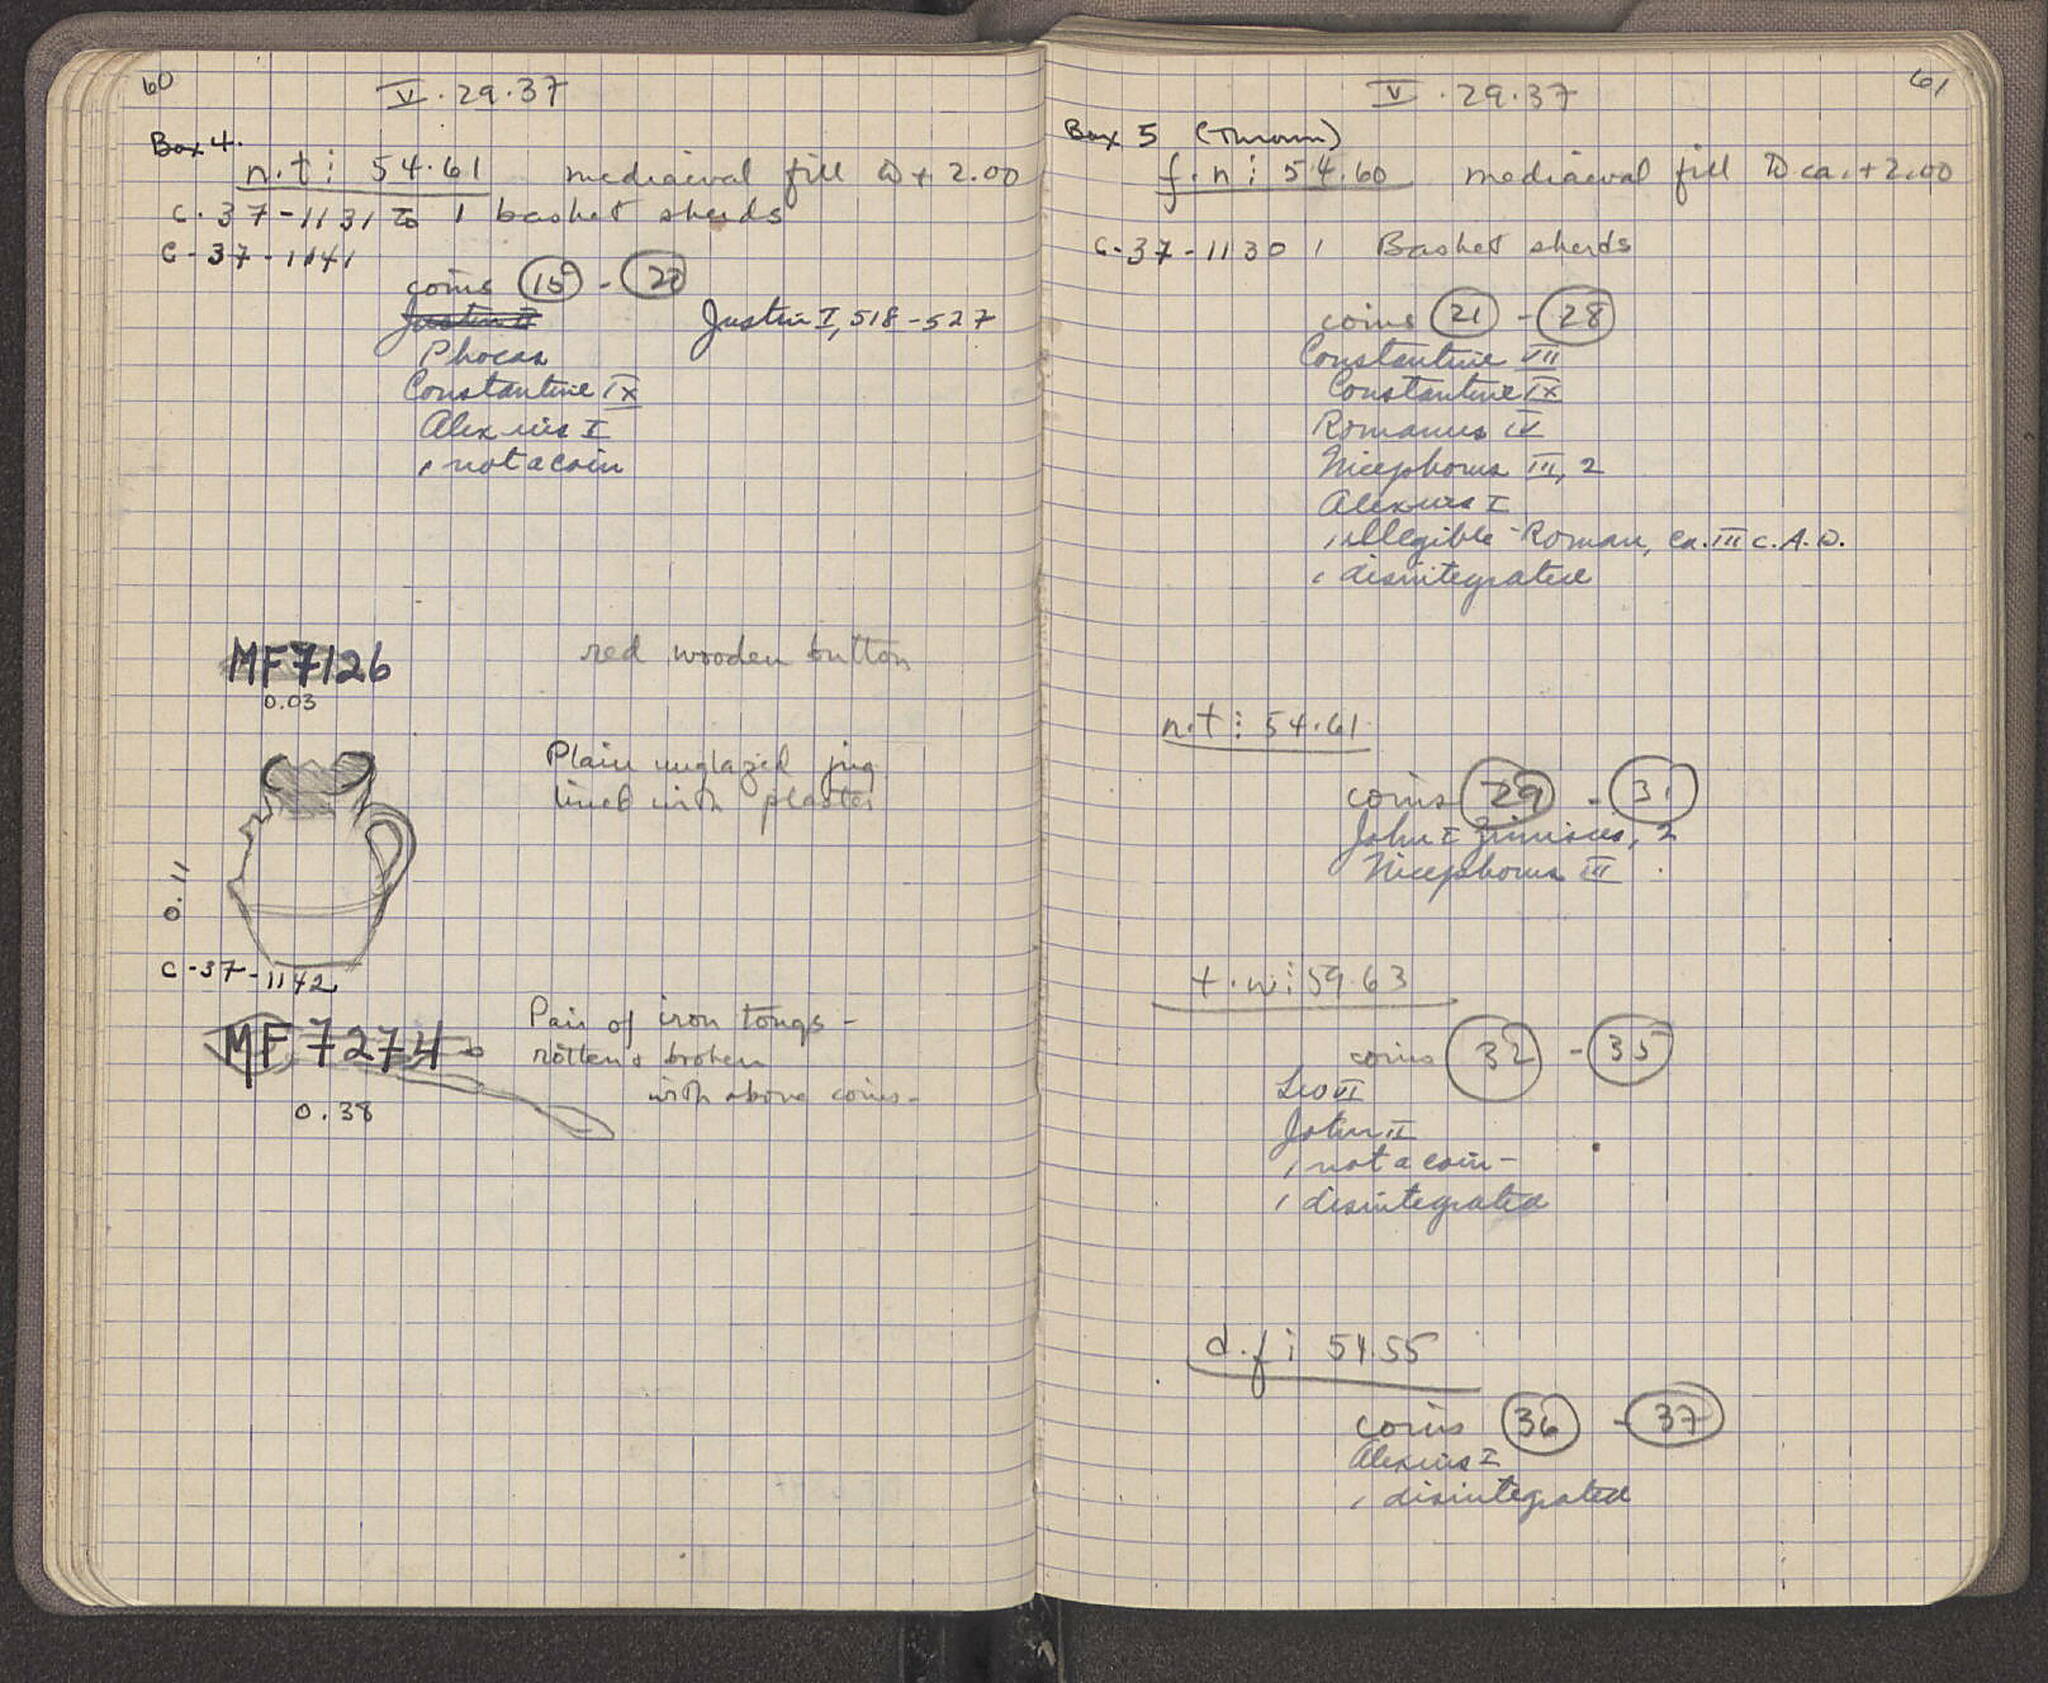 60
V.29.37
Box 4.
n.t: 54.61 mediaeval fill D + 2.00
C.37-1131 to 1 basket sherds
C-37-1141
coins 15 - 20
Justin II Justin I, 518-527
Phocas
Constantine IX
Alexius I
1 not a coin
MF7126 red wooden button
0.03
Plain unglazed jug
lined with plaster
0.11
C-37-1142
MF 7274 Pair of iron tongs -
rotten & broken
with above coins -
0.38
61
V.29.37
Box 5 (Thrown)
f.n: 54.60 mediaeval fill D ca. +2.00
C-37-1130 1 Basket sherds
coins 21 - 28
Constantine VII
Constantine IX
Romanus IV
Nicephorus III, 2
Alexius I
1 illegible - Roman, ca. III c. A.D.
1 disintegrated
n.t: 54.61
coins 29 - 31
John I Zimisces, 2
Nicephorus III
t.w: 59.63
coins 32 - 35
Leo VI
John II
1 not a coin -
1 disintegrated
d.f: 51.55
coins 36 - 37
Alexius I
1 disintegrated